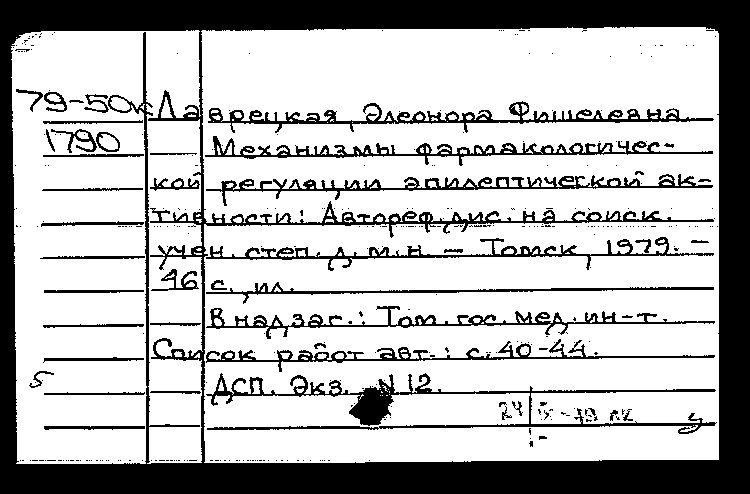 79-50к Лаврецкая, Элеонора Фишелевна
1790 Механизмы фармакологичес-
кой регуляции эпилептической ак-
тивности: Автореф. дис. на соиск.
учен. степ. д.м.н. — Томск, 1979. —
46 с., ил.
В надзаг.: Том. гос. мед. ин-т.
Список работ авт.: с. 40-44.
5 ДСП. Экз. N 12.
24 IX-79